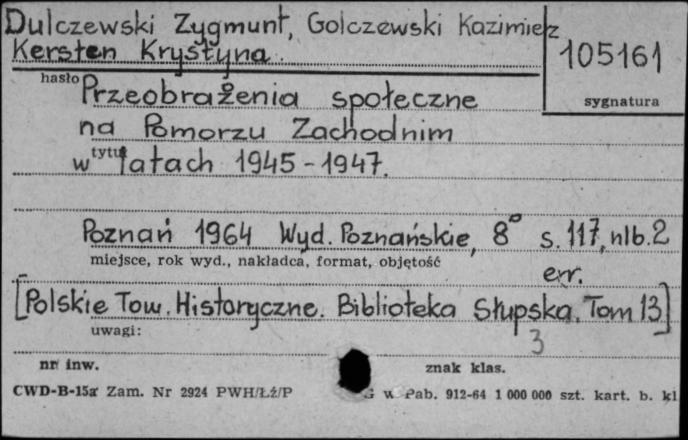 Dulczewski Zygmunt, Golczewski Kazimierz
Kersten Krystyna.
105161
hasło
sygnatura
Przeobrażenia społeczne
na Pomorzu Zachodnim
tytuł
w latach 1945-1947.
Poznań 1964 Wyd. Poznańskie, 8° s. 117, nlb. 2
miejsce, rok wyd., nakładca, format, objętość
err.
[Polskie Tow. Historyczne. Biblioteka Słupska. Tom 13]
uwagi:
3
nr inw.
znak klas.
CWD-B-15a Zam. Nr 2924 PWH/Łż/P
G w Pab. 912-64 1 000 000 szt. kart. b. kl